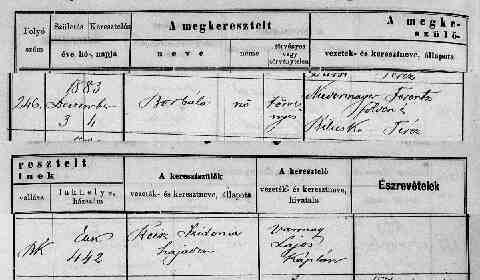 Folyó
szám
Születés Keresztelés
éve, hó-, napja
A megkeresztelt
neve
neme
törvényes
vagy
törvénytelen
A megke-
szülő-
vezeték- és keresztneve, állapota
Teréz
246.
1883
December
3 4
Borbála
nő
törvé-
nyes
Niedermayer Ferentz
földmives
Teréz
resztelt
inek
vallása
lakhelye,
házszáma
A keresztszülők
vezeték- és keresztneve, állapota
A keresztelő
vezeték- és keresztneve,
hivatala
Észrevételek
RK
442
Szidonia
hajadon
Lajos
Káplán